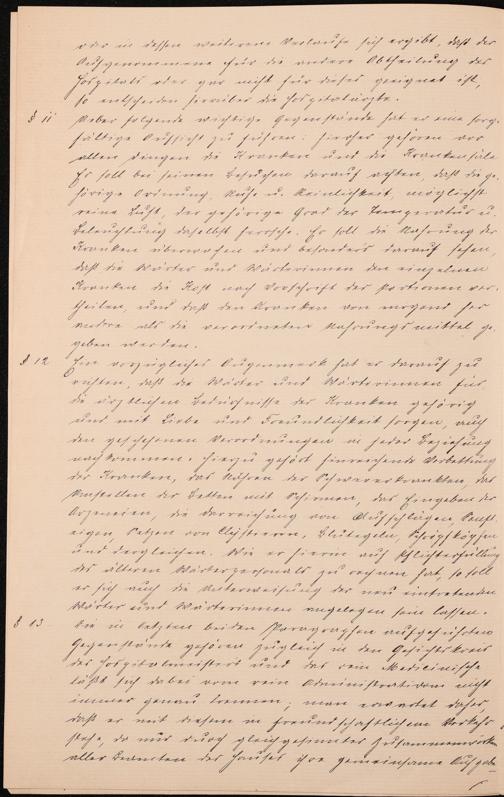 oder in dessen weiterem Verlaufe sich ergibt, daß der
Aufgenommene für die andere Abtheilung des
Hospitals oder gar nicht für dieses geeignet ist,
so entscheiden hierüber die Hospitalärzte.
§ 11 Ueber folgende wichtige Gegenstände hat er eine sorg-
fältige Aufsicht zu führen: hierher gehören vor
allen Dingen die Kranken und die Krankensäle
Er soll bei seinen Besuchen darauf achten, daß die ge-
hörige Ordnung, Ruhe u. Reinlichkeit, möglichst
reine Luft, der gehörige Grad der Temperatur u.
Beleuchtung daselbst herrsche. Er soll die Nahrung der
Kranken überwachen und besonders darauf sehen,
daß die Wärter und Wärterinnen den einzelnen
Kranken die Kost nach Vorschrift der Portionen ver-
theilen, und daß den Kranken von niemand her
andere als die verordneten Nahrungsmittel ge-
geben werden.
§ 12 Ein vorzügliches Augenmerk hat er darauf zu
richten, daß die Wärter und Wärterinnen für
die ärztlichen Bedürfnisse der Kranken gehörig
und mit Liebe und Freundlichkeit sorgen, auch
den geschehenen Verordnungen in jeder Beziehung
nachkommen. Hierzu gehört hinreichende Verbettung
der Kranken, das der Schwererkrankten, das
Umstellen der Betten mit Schirmen, das Eingeben der
Arzneien, die Darreichung von Aufschlägen, Senft-
eigen, Setzen von Clystieren, Blutegeln, Schröpfköpfen
und dergleichen. Wie er hierin auf Pflichterfüllung
des älteren Wärterpersonals zu rechnen hat, so soll
er sich auch die Unterweisung der neu eintretenden
Wärter und Wärterinnen angelegen sein lassen.
§ 13. Die in letzten beiden Paragraphen aufgeführten
Gegenstände gehören zugleich in den Gesichtskreis
des Hospitalmeisters und das rein Medicinische
läßt sich dabei vom rein Administrativen nicht
immer genau trennen; man erwartet daher,
daß er mit diesem in freundschaftlichem Verkehr
stehe, da nur durch gleichgesinntes Zusammenwirken
aller Beamten des Hauses ihre gemeinsame Aufgabe